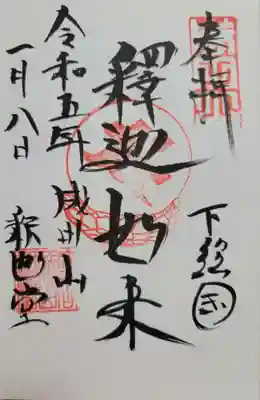 奉拝
下総国
釋迦如来
成田山
釈迦堂
令和五年
一月八日